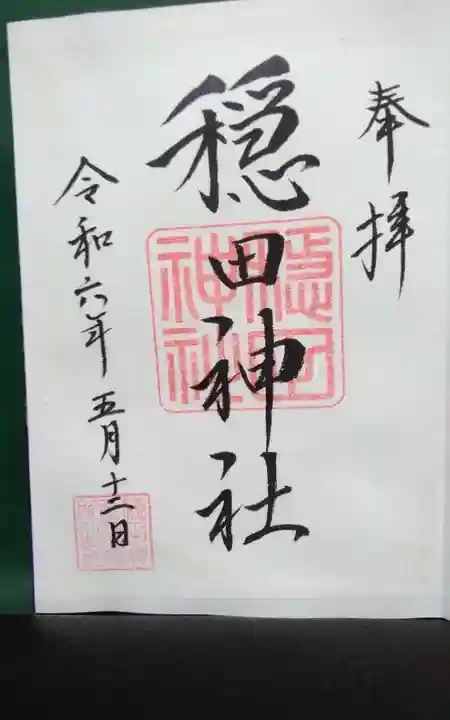 奉拝
穏田神社
令和六年五月十二日
穏田
神社